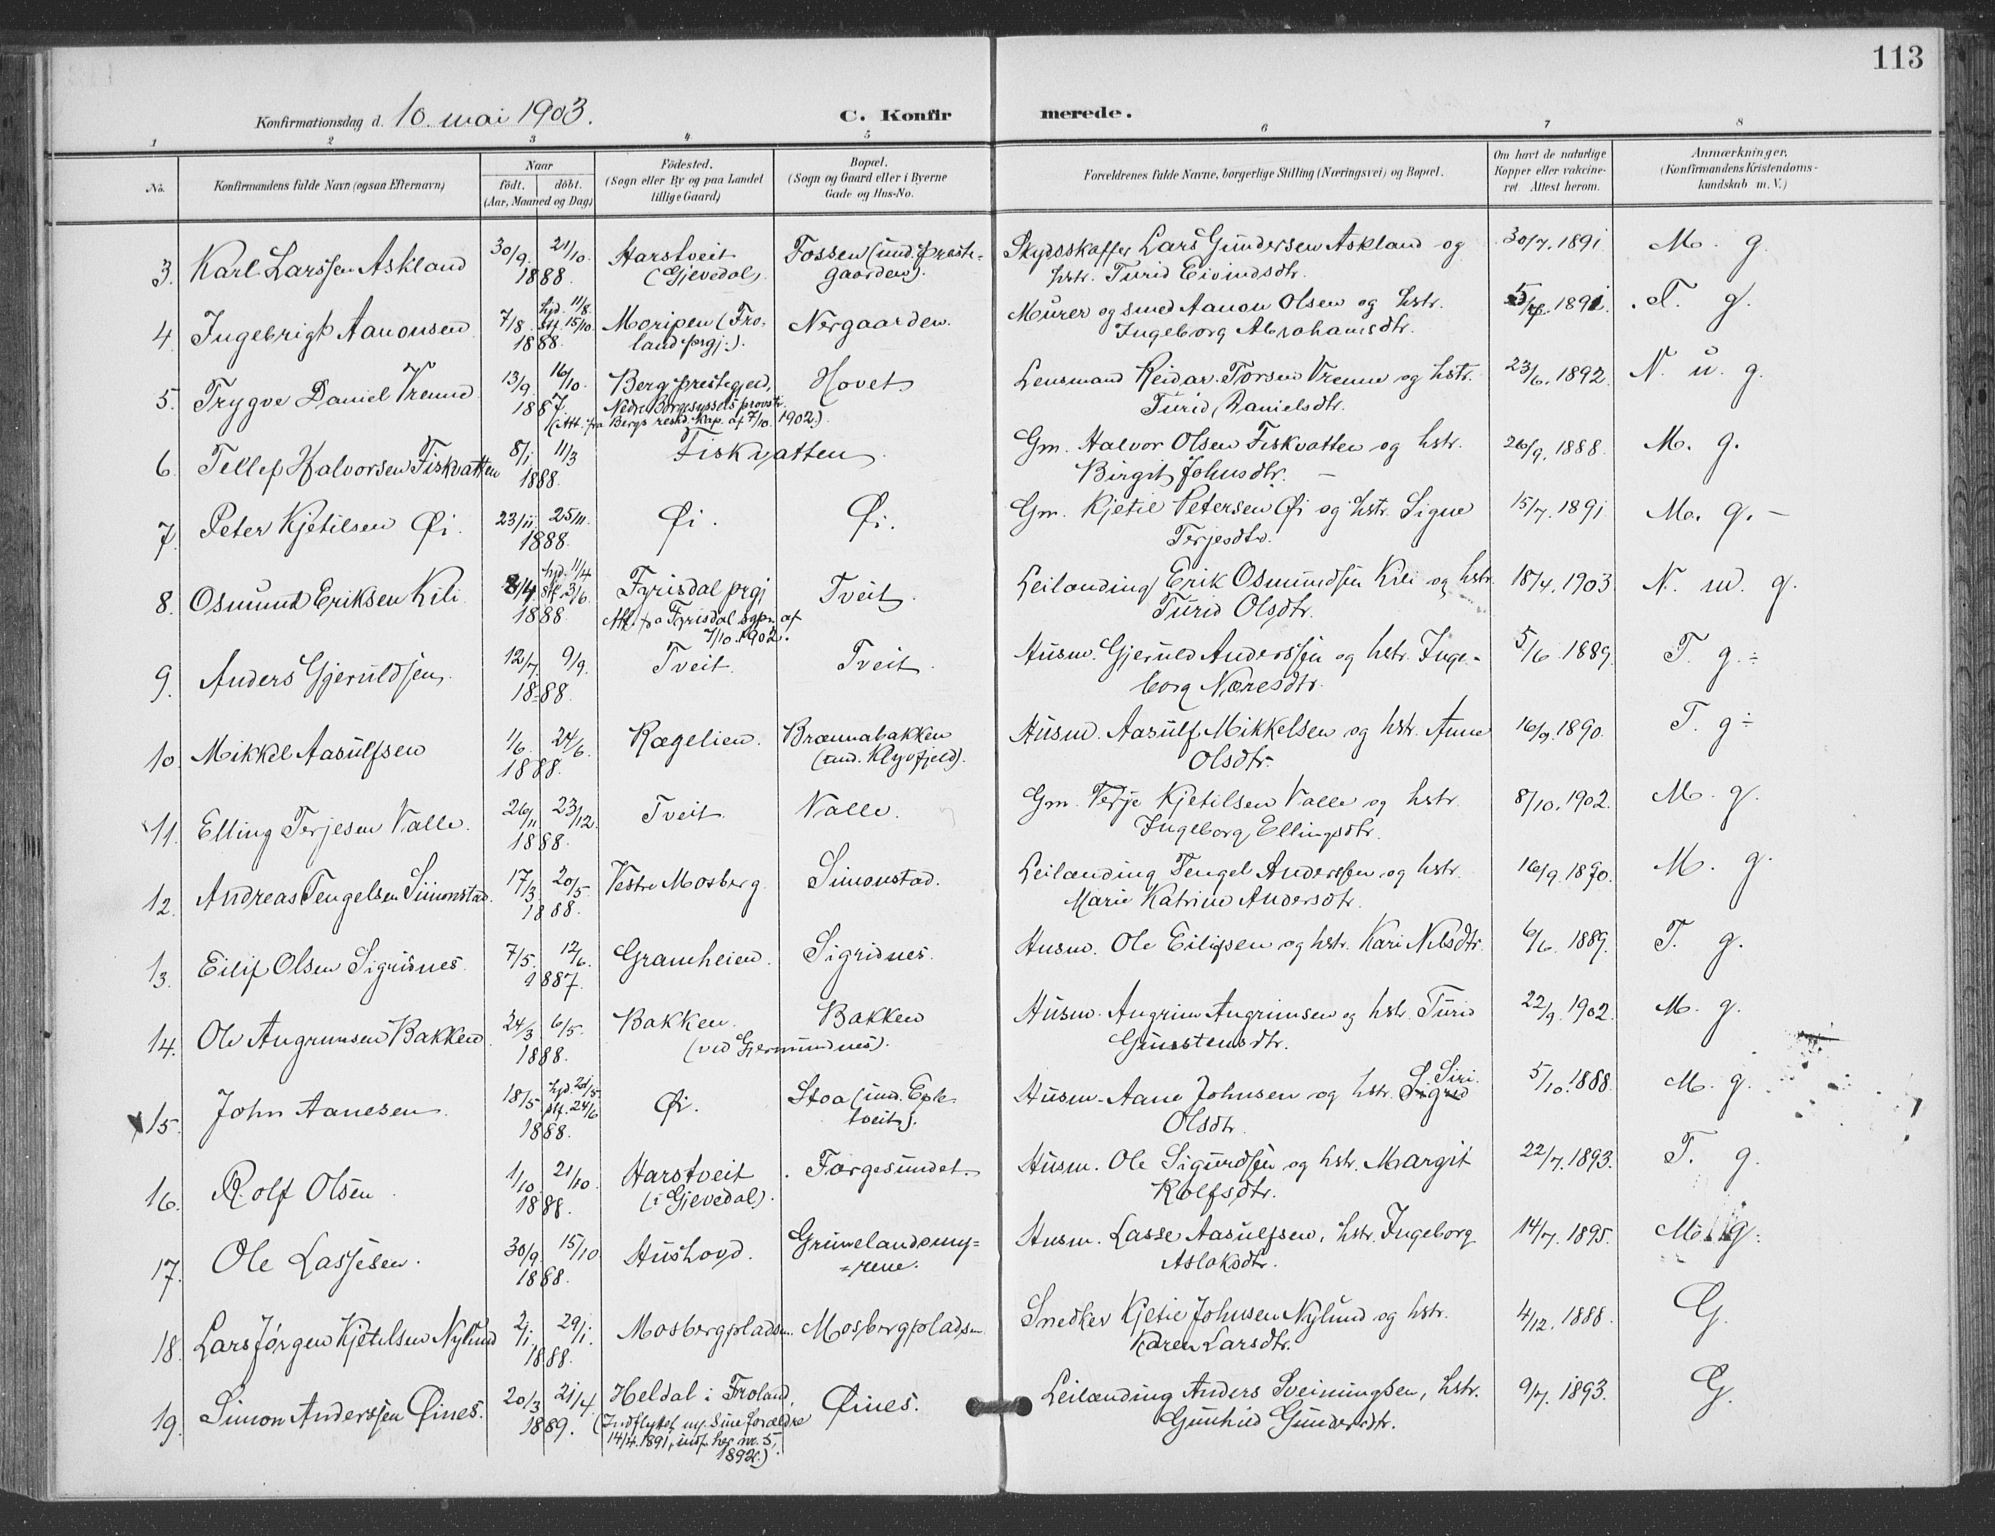 113
Konfirmationsdag d. 10. mai 1903. C. Konfirmerede.
1 2 3 4 5 6 7 8
No. Konfirmandens fulde Navn (ogsaa Efternavn) Naar født. døbt. (Aar, Maaned og Dag) Födested. (Sogn eller By og paa Landet tillige Gaard) Bopæl. (Sogn og Gaard eller i Byerne Gade og Hus-No. Forældrenes fulde Navne, borgerlige Stilling (Næringsvei) og Bopæl. Om havt de naturlige Kopper eller vaccineret. Attest herom. Anmærkninger, (Konfirmandens Kristendomskundskab m. V.)
3. Karl Larssen Askland 30/9. 21/10. Harstveit Fossen (und. preste- Skydsskaffer Lars Gundersen Askland og 30/7. 1891. M. g.
1888 (Gjevedal). gaarden). hstr. Turid Eivindsdtr.
4. Ingebrigt Aanonsen 7/8. hjd. 11/8. stf. 15/10. Moripen (Fro- Nergaarden. Murer og smed Aanon Olsen og hstr. 1891. T. g.
1888. land prgj.). Ingeborg Abrahamsdtr.
5. Trygve Daniel Vrenne 13/9. 16/10. Berg prestegjeld, Hovet Lensmand Reidar Torsen Vrenne og hstr. 23/6. 1892. N. u. g.
1887. Nedre Borgesyssels provsti Turid Danielsdtr.
(Att. fra Bergs resid. kap. af 7/10. 1902.)
6. Tellef Halvorsen Fiskvatten 8/1 11/3 Fiskvatten. Gm. Halvor Olsen Fiskvatten og hstr. 26/9. 1888. M. g.
1888. Birgit Johnsdtr. –
7. Peter Kjetilsen Øi. 23/11. 25/11. Øi. Øi. Gm. Kjetil Petersen Øi og hstr. Signe 15/7. 1891. M. g. –
1888. Terjesdtr.
8. Osmund Eriksen Kili 8/4 hjd. 11/4 stf. 3/6. Fyrisdal prgj Tveit. Leilænding Erik Osmundsen Kili og hstr. 18/4. 1903. N. m. g.
1888 Att. fra Fyrisdal sgpr. af Turid Olsdtr.
7/10. 1902.
9. Anders Gjeruldsen. 12/7. 9/9. Tveit. Tveit. Husm. Gjeruld Anderssen og hstr. Inge- 5/6. 1889. T. g. ÷
1888. borg Næresdtr.
10. Mikkel Aasulfsen 1/6. 24/6. Rægelien. Brænnabakken Husm. Aasulf Mikkelsen og hstr. Anne 16/9. 1890. T. g ÷
1888. (und. Klyvfjeld). Olsdtr.
11. Elling Terjesen Valle. 26/11 23/12. Tveit. Valle. Gm. Terje Kjetilsen Valle og hstr. 8/10. 1902. M. g.
1888. Ingeborg Ellingsdtr.
12. Andreas Tengelsen Simonstad. 17/3. 20/5. Vestre Mosberg. Simonstad. Leilænding Tengel Anderssen og hstr. 16/9. 1890. M. g.
1888. Marie Katrine Andersdtr.
13. Eilif Olsen Sigridnes. 7/5. 12/6. Gramheien. Sigridnes. Husm. Ole Eilifsen og hstr. Kari Nilsdtr. 6/6. 1889. T. g.
1887.
14. Ole Angrimsen Bakken 24/3 6/5. Bakken. Bakken Husm. Angrim Angrimsen og hstr. Turid 22/9. 1902. M. g.
1888. (ved Gjermundnes). Gunstensdtr.
15. John Aanesen. 18/5 hjd. 21/5. stf. 24/6 Øi. Stoa (und. Eple- Husm. Aane Johnsen og hstr. Sigrid Siri. 5/10. 1888. M. g.
1888. tveit). Olsdtr.
16. Rolf Olsen. 1/10. 21/10. Harstveit Fargesundet. Husm. Ole Sigurdsen og hstr. Margit 22/7. 1893. T. g.
1888. (i Gjevedal). Rolfsdtr.
17. Ole Lassesen. 30/9. 15/10 Hushovd. Grimelandsmy= Husm. Lasse Aasulfsen, hstr. Ingeborg 14/7. 1895. M. g.
1888. =rene. Aslaksdtr.
18. Lars Jørgen Kjetilsen Nylund 2/1. 29/1. Mosbergpladsen. Mosbergpladsen Snedker Kjetil Johnsen Nylund og hstr. 4/12. 1888. G.
1888. Karen Larsdtr.
19. Simon Anderssen Øines. 20/3 21/4 Heldal i Froland, Øines. Leilænding Anders Sveinungsen, hstr. 9/7. 1893. G.
1889. (Indflyttet m. sine forældre Gunhild Gundersdtr.
14/4. 1891, indf. her nr. 5, 1892.)